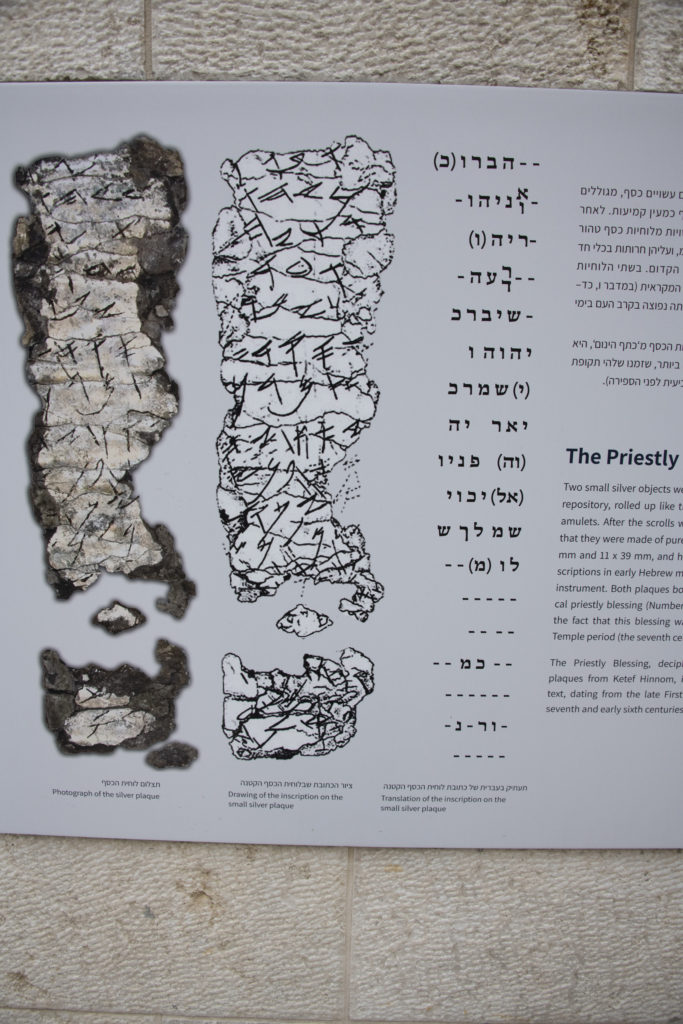 --הברו(כ)
-אוניהו-
-ריה(ו)
--רדעה-
-שיברכ
יהוה ו
(י)שמרכ
יאר יה
(וה) פניו
(אל)יכוי
שמ לך ש
לו (מ)--
-----
-- --
-- כמ --
------
-ור-נ-
-----
עשויים כסף, מגוללים
כמעין קמיעות. לאחר
מלוחיות כסף טהור
ועליהן חרותות בכלי חד
הקדום. בשתי הלוחיות
המקראית (במדבר ו, כד–
נפוצה בקרב העם בימי
הכסף מ'כתף הינום', היא
ביותר, שזמנו שלהי תקופת
לפני הספירה).
The Priestly
Two small silver objects we
repository, rolled up like t
amulets. After the scrolls w
that they were made of pure
mm and 11 x 39 mm, and h
scriptions in early Hebrew m
instrument. Both plaques bo
cal priestly blessing (Number
the fact that this blessing wa
Temple period (the seventh ce
The Priestly Blessing, decip
plaques from Ketef Hinnom, i
text, dating from the late First
seventh and early sixth centuries
תצלום לוחית הכסף
Photograph of the silver plaque
ציור הכתובת שבלוחית הכסף הקטנה
Drawing of the inscription on the
small silver plaque
תעתיק בעברית של כתובת לוחית הכסף הקטנה
Translation of the inscription on the
small silver plaque